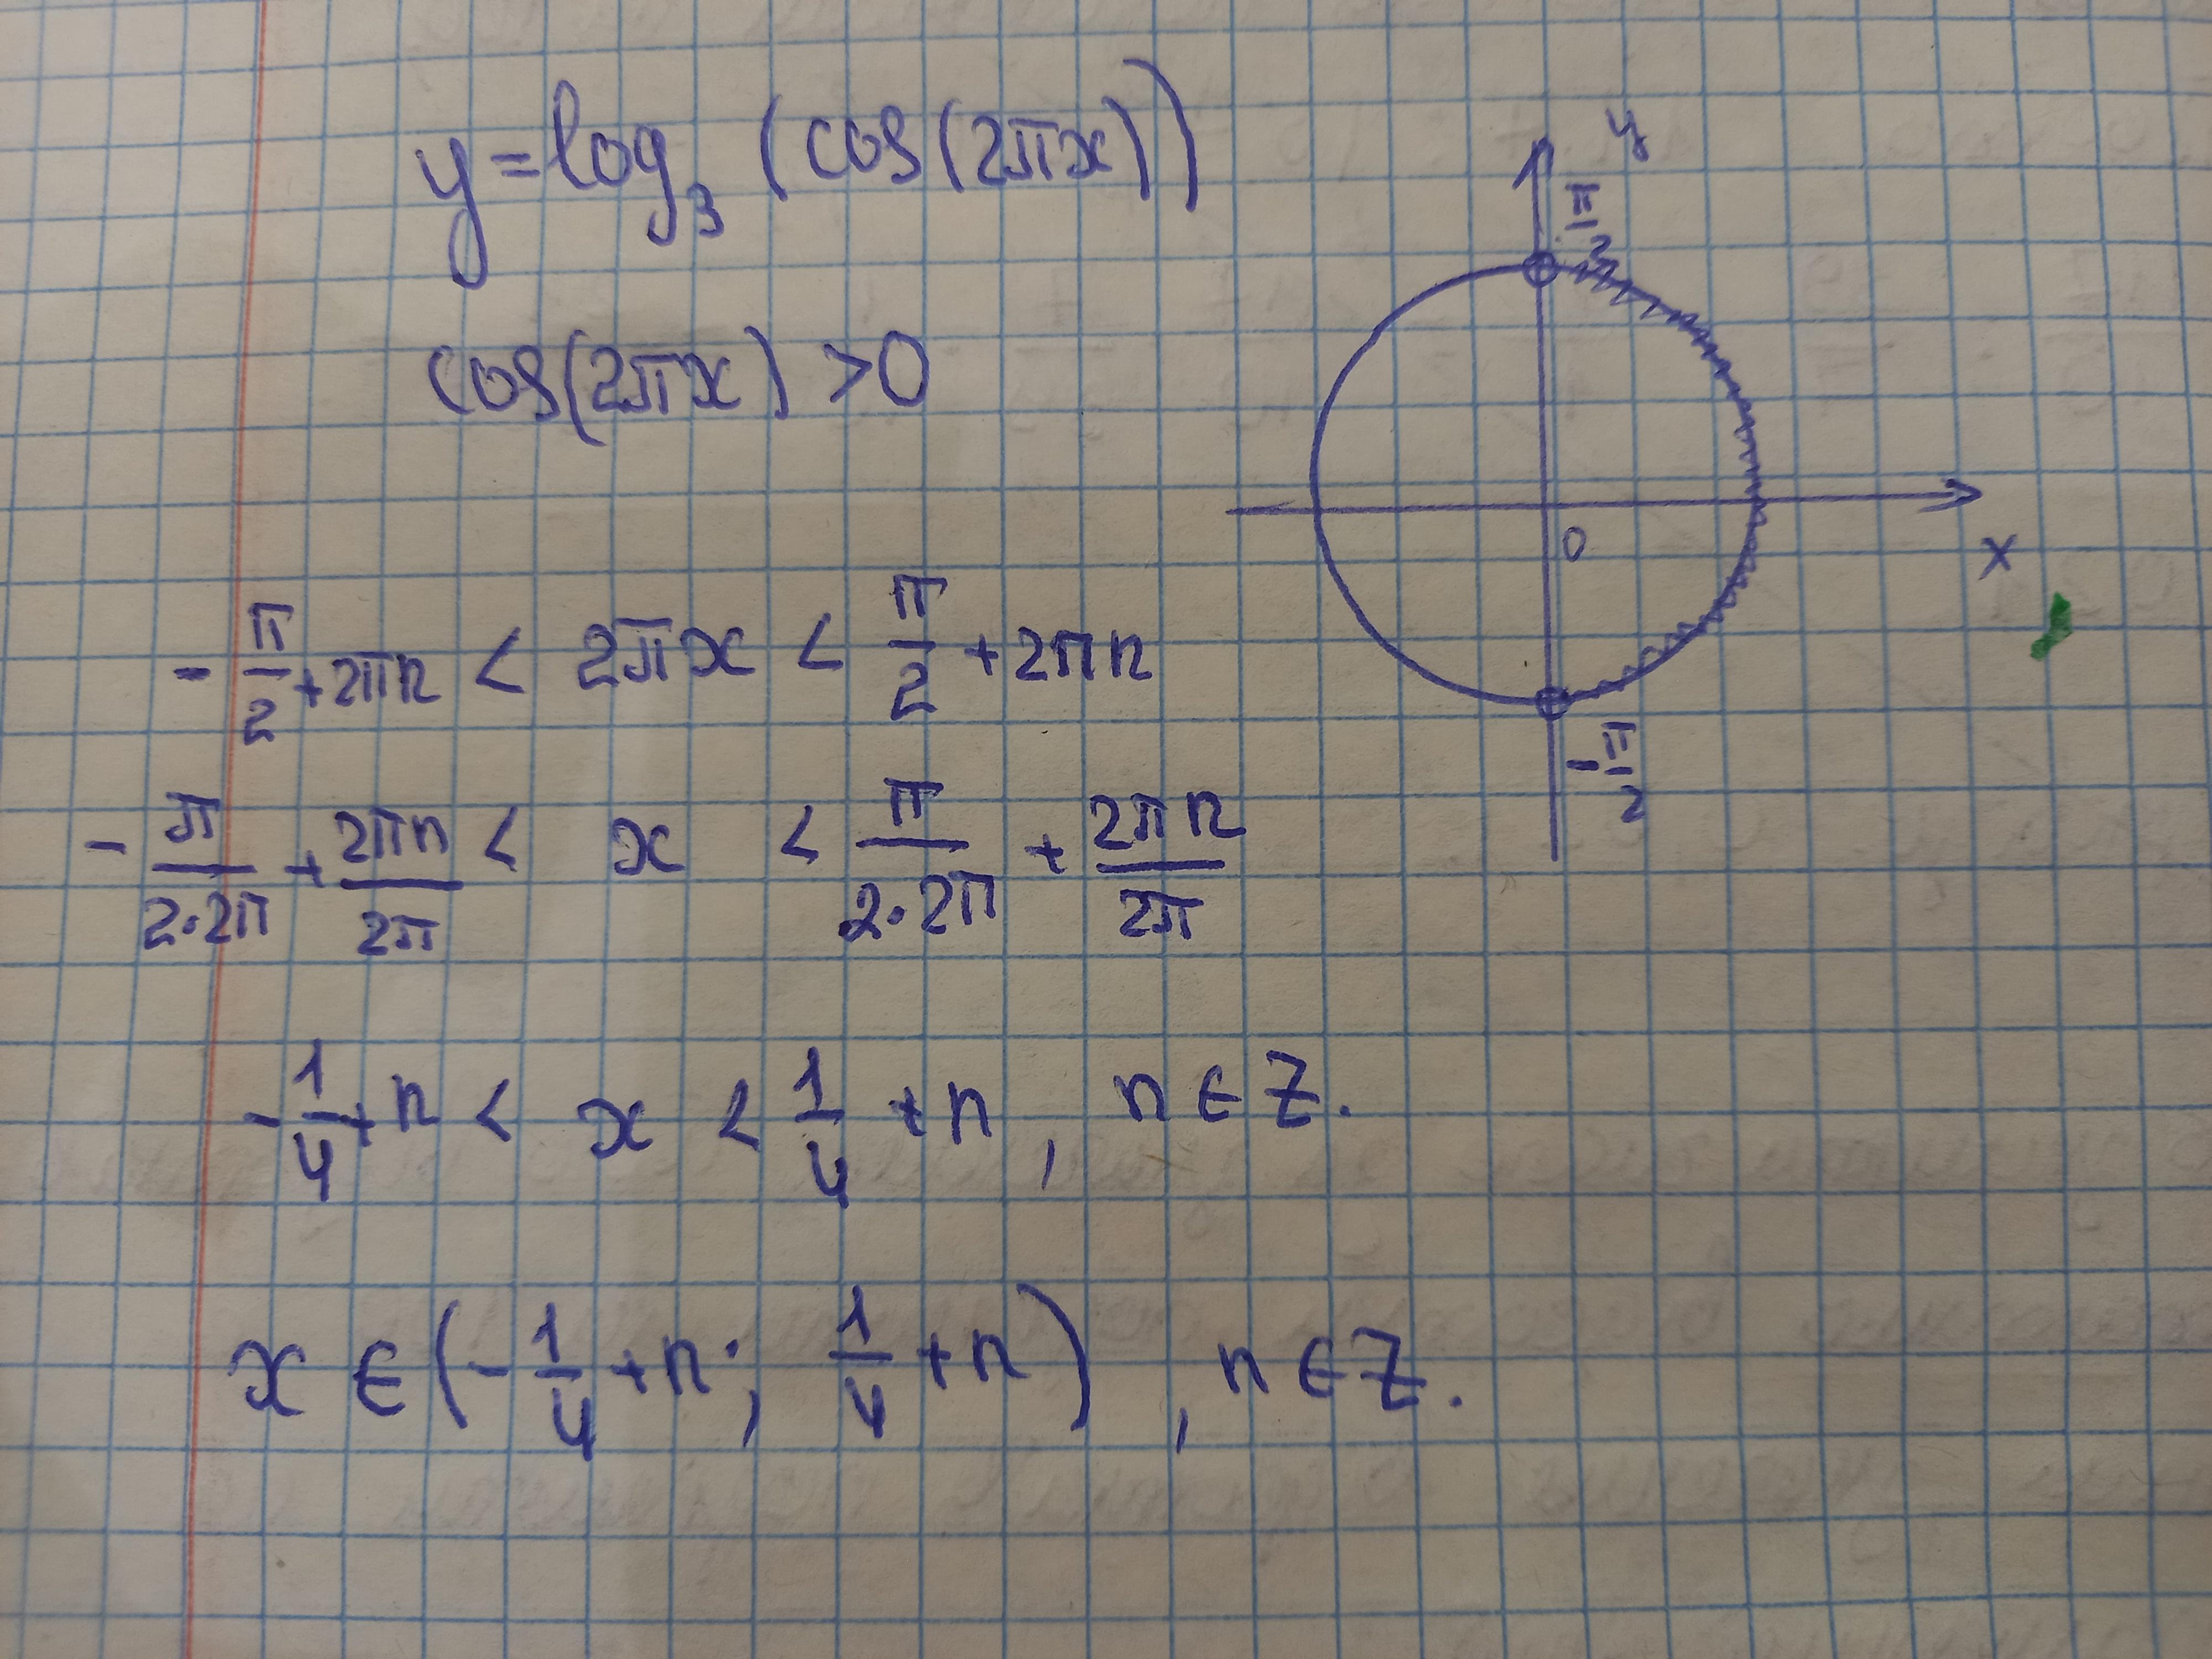 y = log₃ (cos(2πx))
cos(2πx) > 0
-π/2 + 2πn < 2πx < π/2 + 2πn
-π/(2·2π) + 2πn/2π < x < π/(2·2π) + 2πn/2π
-1/4 + n < x < 1/4 + n, n ∈ Z.
x ∈ (-1/4 + n; 1/4 + n), n ∈ Z.
y
π/2
0
x
-π/2